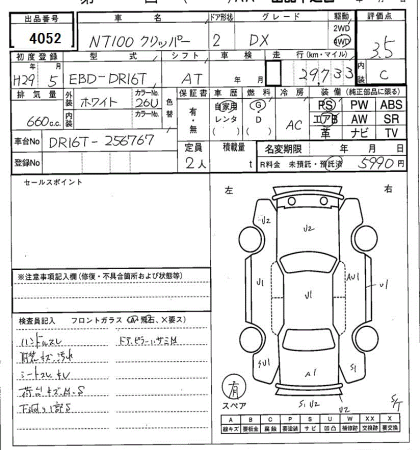 出品番号 車名 ドア形状 グレード 駆動 評価点
4052 NT100クリッパー 2 DX 2WD 4WD 3.5
初度登録 型式 シフト 車検 走行(km・マイル) 内装
H29年 5月 EBD-DR16T AT 年 月 29,733 C
排気量 外装 ホワイト カラーNo. 26U 色替 保証書 車歴 燃料 冷房 装備(純正品に限る)
660cc 内装 カラーNo. 有・無 自家用 レンタ G D AC PS PW ABS
エアB AW SR
革 ナビ TV
車台No DR16T-256767 定員 積載量 名変期限 年 月 日
登録No 2人 t R料金 未預託・預託済 5990円
セールスポイント 左 右
U2
U2
U1 U1 AU1 U1
※注意事項記入欄(修復・不具合箇所および状態等)
検査員記入 フロントガラス (A飛石、X要ス)
ハンドルスレ ドア,ピラーハザミH
シートスレ
荷台キズ,M,S
下廻り錆S
SU1 A1 S1
有 スペア S1 U2 U2 S/T
A B C P S U W X XX
線キズ 要板金 腐蝕 要塗装 サビ 凹凸 補修跡 交換跡 要交換